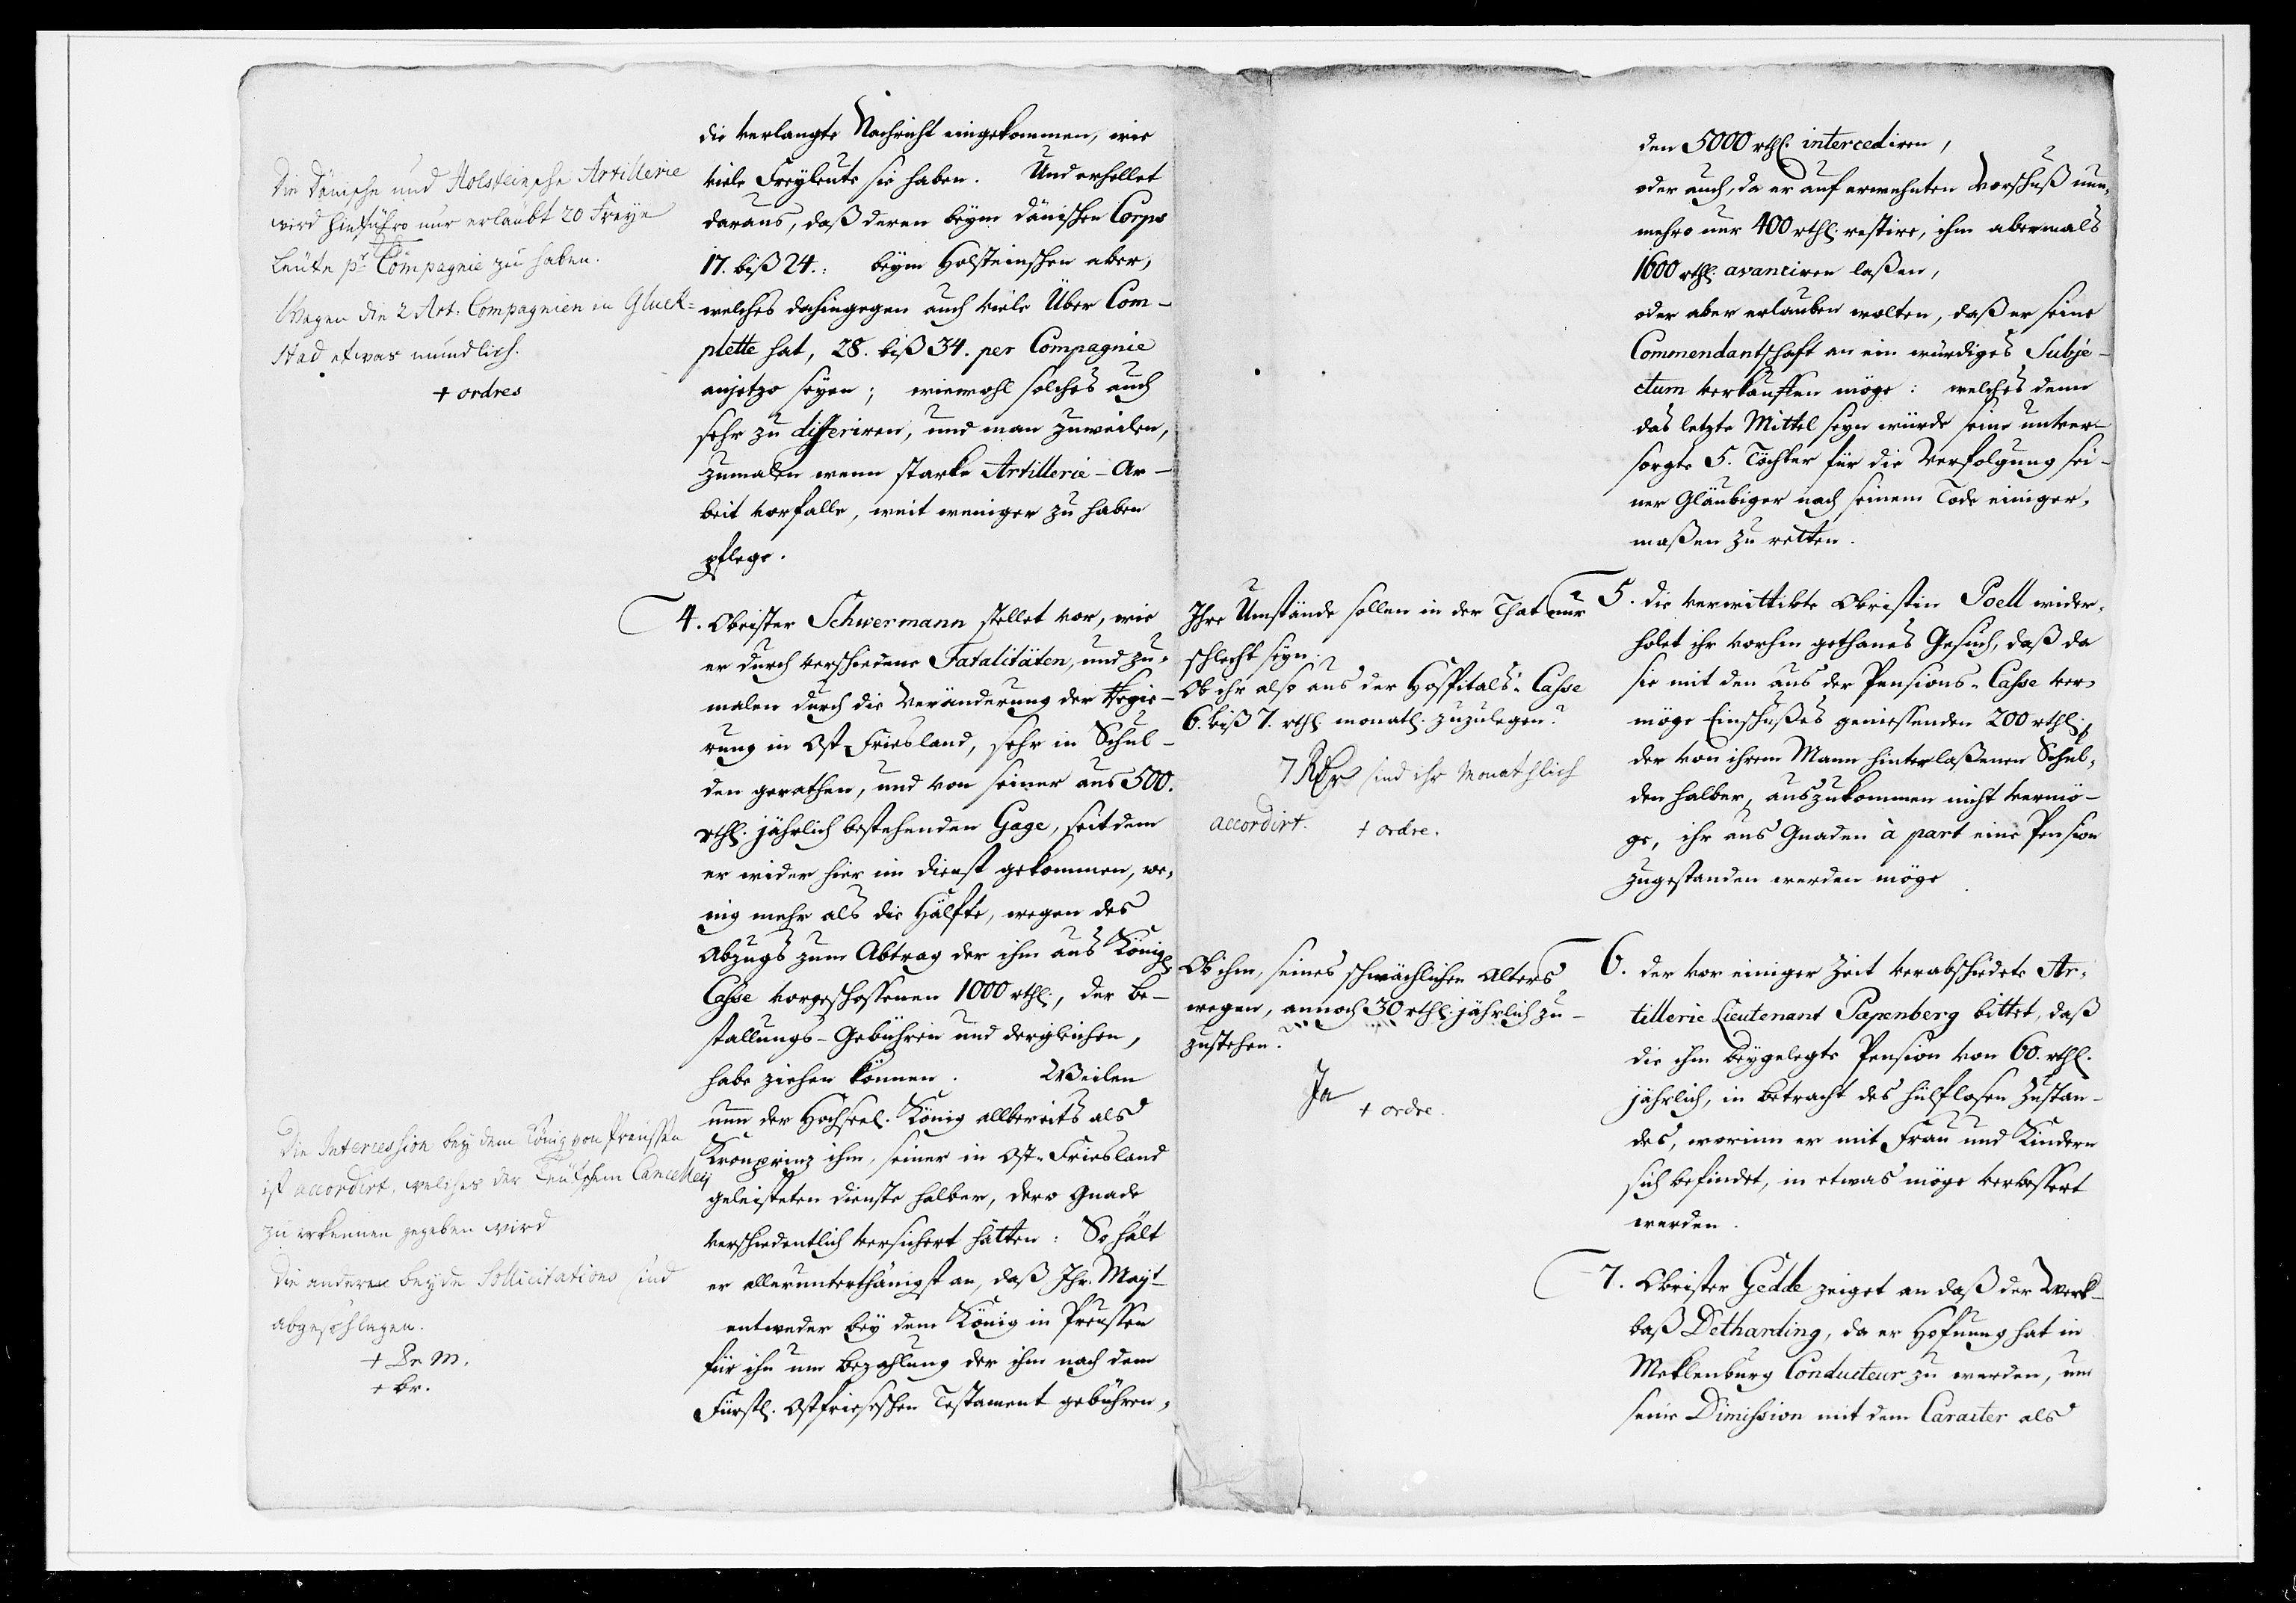 die verlangte Nachricht eingekommen, wie
viele Freyleute sie haben. Und erhellet
daraus, daß deren beym dänischen Corps
17. biß 24.: beym Holsteinschen aber,
welches dahingegen auch viele Über Com-
plette hat, 28. biß 34. per Compagnie
anjetzo seyen; wiewohl solches auch
sehr zu differiren, und man zuweilen,
zumalen wenn starke Artillerie-Ar-
beit vorfalle, weit weniger zu haben
pflege.
Die Dänische und Holsteinsche Artillerie
wird hinführo nur erlaubt 20 Freye
Leute pr Compagnie zu haben.
Wegen die 2 Art. Compagnien in Gluck=
stad etwas mündlich.
+ ordres
4. Obrister Schwermann stellet vor, wie
er durch verschiedene Fatalitäten, und zu-
malen durch die Veränderung der Regie-
rung in Ost-Friesland, sehr in Schul-
den gerathen, und von seiner aus 500.
rthl. jährlich bestehenden Gage, seitdem
er wider hier im Dienst gekommen, we-
nig mehr als die Hälfte, wegen des
Abzugs zum Abtrag der ihm aus Königl.
Casse vorgeschossenen 1000 rthl., der Be-
stallungs-Gebühren und dergleichen,
habe ziehen können. Weilen
nun der Hochseel. König allbereits als
Kronprinz ihm, seiner in Ost-Friesland
geleisteten Dienste halber, dero Gnade
verschiedentlich versichert hätten: So hält
er allerunterthänigst an, daß Ihr. Mayt
entweder bey dem König in Preussen
für ihn um Bezahlung der ihm nach dem
Fürstl. Ostfriesischen Testament gebühren-
Die Intercession bey dem König von Preussen
ist accordirt, welches der Teutschen Canceley
zu erkennen gegeben wird
Die anderen beyde Sollicitations sind
abgeschlagen.
+ Pr. M.
+ br.
den 5000 rthl. intercediren,
oder auch, da er auf erwehnten Vorschuß nun-
mehro nur 400 rthl. restire, ihm abermals
1600 rthl. avanciren laßen,
oder aber erlauben wolten, daß er seine
Commendantschaft an ein würdiges Subje-
ctum verkauffen möge: welches denn
das letzte Mittel seyn würde seine unver-
sorgte 5. Töchter für die Verfolgung sei-
ner Gläubiger nach seinem Tode einiger-
maßen zu retten.
5. Die verwittibte Obristin Poell wider-
holet ihr vorhin gethanes Gesuch, daß da
sie mit den aus der Pensions-Casse ver-
möge Einschußes geniessenden 200 rthl.,
der von ihrem Mann hinterlaßenen Schul-
den halber, auszukommen nicht vermö-
ge, ihr aus Gnaden à part eine Pension
zugestanden werden möge
Ihre Umstände sollen in der That nur
schlecht seyn.
Ob ihr also aus der Hospitals-Casse
6. biß 7. rthl. monatl. zuzulegen?
7 Rdr sind ihr Monathlich
accordirt. + ordre.
6. Der vor einiger Zeit verabschiedete Ar-
tillerie Lieutenant Papenberg bittet, daß
die ihm beygelegte Pension von 60. rthl.
jährlich, in betracht des hülflosen Zustan-
des, worinn er mit Frau und Kindern
sich befindet, in etwas möge verbessert
werden.
Ob ihm, seines schwächlichen Alters
wegen, annoch 30 rthl. jährlich zu-
zustehen?
Ja
+ ordre.
7. Obrister Gedde zeiget an daß der Werk-
baß Detharding, da er Hofnung hat in
Meklenburg Conducteur zu werden, um
seine Dimission mit dem Caracter als